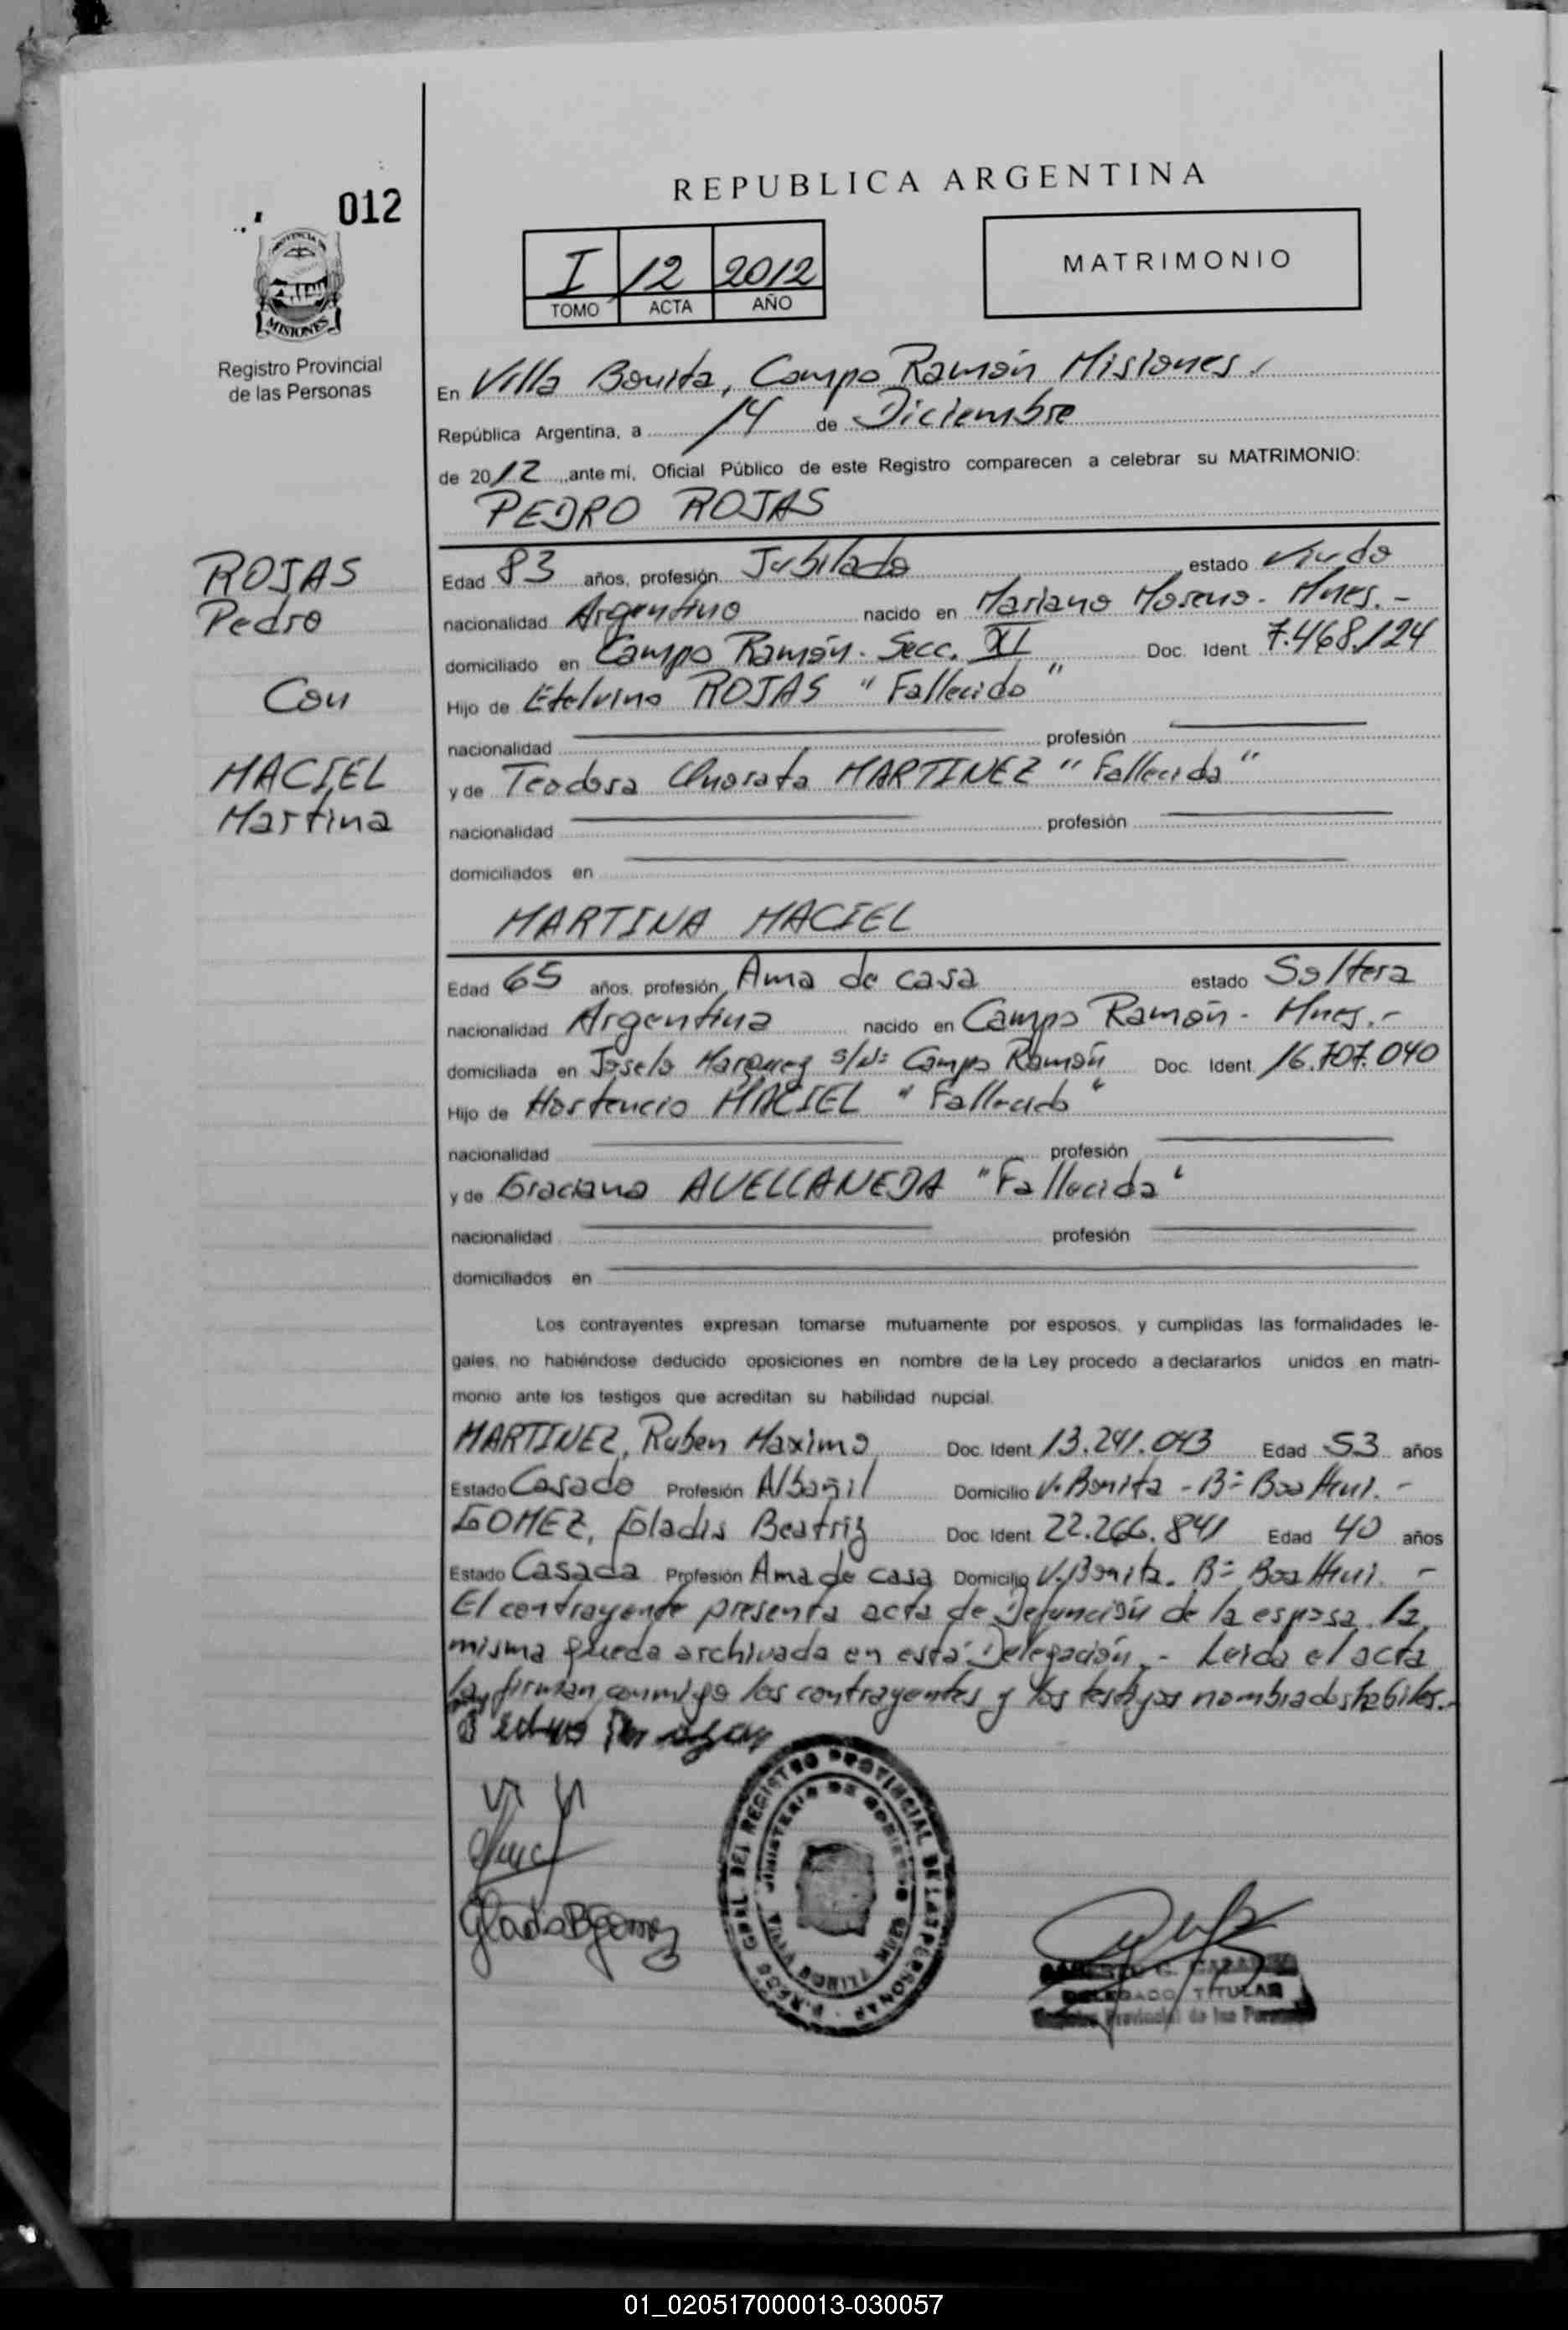 REPUBLICA ARGENTINA
012
PROVINCIA DE
MISIONES
Registro Provincial
de las Personas
I 12 2012
TOMO ACTA AÑO
MATRIMONIO
En Villa Bonita, Campo Ramón Misiones.
República Argentina, a 14 de Diciembre
de 2012 ante mi, Oficial Público de este Registro comparecen a celebrar su MATRIMONIO:
PEDRO ROJAS
ROJAS
Pedro
Con
MACIEL
Martina
Edad 83 años, profesión Jubilado estado Viudo
nacionalidad Argentino nacido en Mariano Moreno - Mnes.-
domiciliado en Campo Ramón. Secc. XI Doc. Ident. 7.468.124
Hijo de Etelvino ROJAS "Fallecido"
nacionalidad profesión
y de Teodora MARTINEZ "Fallecida"
nacionalidad profesión
domiciliados en
MARTINA MACIEL
Edad 65 años, profesión Ama de casa estado Soltera
nacionalidad Argentina nacido en Campo Ramón - Mnes.-
domiciliada en Marquez s/Nº Campo Ramón Doc. Ident. 16.707.040
Hijo de Hortencio MACIEL "Fallecido"
nacionalidad profesión
y de Graciana AVELLANEDA "Fallecida"
nacionalidad profesión
domiciliados en
Los contrayentes expresan tomarse mutuamente por esposos, y cumplidas las formalidades le-
gales, no habiéndose deducido oposiciones en nombre de la Ley procedo a declararlos unidos en matri-
monio ante los testigos que acreditan su habilidad nupcial.
MARTINEZ, Ruben Maximo Doc. Ident. 13.241.043 Edad 53 años
Estado Casado Profesión Albañil Domicilio V. Bonita - Bº
GOMEZ, Gladis Beatriz Doc. Ident. 22.266.841 Edad 40 años
Estado Casada Profesión Ama de casa Domicilio V. Bonita. Bº
El contrayente presenta acta de Defunción de la esposa. la
misma queda archivada en esta Delegación.- Leida el acta
la firman conmigo los contrayentes y los testigos nombrados habiles.-
REGISTRO PROVINCIAL DE LAS PERSONAS
MINISTERIO DE GOBIERNO
VILLA BONITA
DELEGADO TITULAR
Provincial de las
01_020517000013-030057